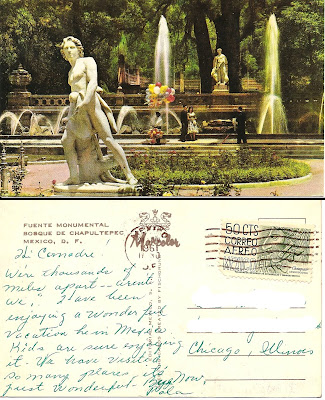 FUENTE MONUMENTAL
BOSQUE DE CHAPULTEPEC
MEXICO, D. F.
Hi Comadre
We're thousands of
miles apart - aren't
we? I have been
enjoying a wonderful
vacation here in Mexico
Kids are sure enjoying
it. We have visited
so many places, it's
just wonderful. Bye Now,
Lola
Chicago, Illinois
Mexico
Marcolor
50 CTS
CORREO
AEREO